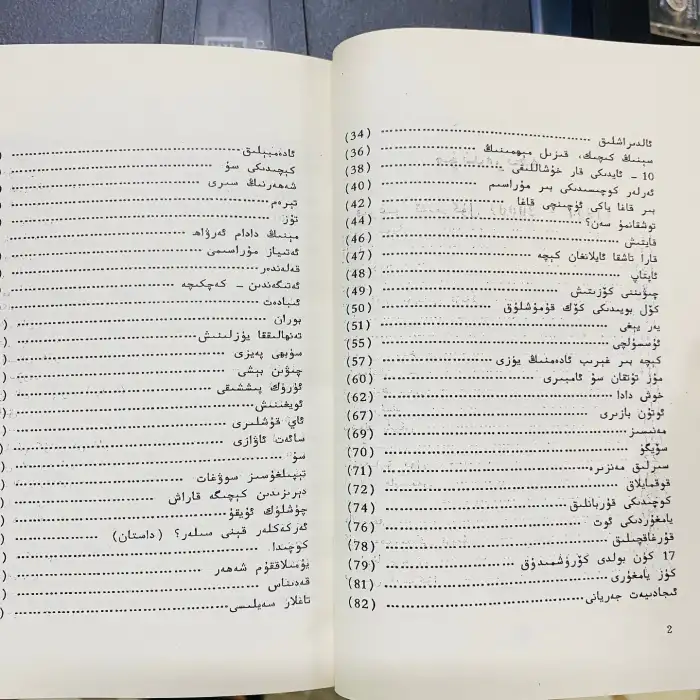 ئالدىراشلىق (34)
سېنىڭ كىچىك، قىزىل مېھىنىڭ (36)
10 - ئايدىكى قار خۇشاللىقى (38)
ئەرلەر كوچىسىدىكى بىر مۇراسىم (40)
بىر قاغا ياكى ئۈچىنچى قاغا (42)
توشقانمۇ سەن؟ (44)
قايتىش (46)
قارا تاشقا ئايلانغان كېچە (47)
ئاپتاپ (48)
چىۋىننى كۆزىتىش (49)
كۆل بويىدىكى كۆك قۇمۇشلۇق (50)
يەر يېغى (51)
ئۇسسۇلچى (55)
كېچە بىر غېرىب ئادەمنىڭ يۈزى (57)
مۇز تۇتقان سۇ ئامبىرى (60)
خوش دادا (62)
ئوتۇن بازىرى (67)
مەنىسىز (69)
سۆيگۈ (70)
سىرلىق مەنزىرە (71)
قوقمايلاق (72)
كوچىدىكى قۇربانلىق (74)
يامغۇردىكى ئوت (76)
قۇرغاقچىلىق (78)
17 كۈن بولدى كۆرۈشمىدۇق (79)
كۈز يامغۇرى (81)
ئىجادىيەت جەريانى (82)
2
ئادەمىيلىق
كېچىدىكى سۇ
شەھەرنىڭ سىرى
تېرەم
تۇز
مېنىڭ دادام ئەرۋاھ
ئەتىياز مۇراسىمى
قەلەندەر
ئەتىگەندىن - كەچكىچە
ئىبادەت
بوران
تەنھالىققا يۈزلىنىش
سۈبھى پەيزى
چىۋىن بېشى
ئۈرۈك پىششىقى
ئويغىنىش
ئاي قۇشلىرى
سائەت ئاۋازى
سۇ
تېپىلغۇسىز سوۋغات
دېرىزىدىن كېچىگە قاراش
چۈشلۈك ئۇيقۇ
ئەركەكلەر قېنى سىلەر؟ (داستان)
كوچىدا
يۇمىلاققۇم شەھەر
قەدىناس
تاغلار سەيلىسى